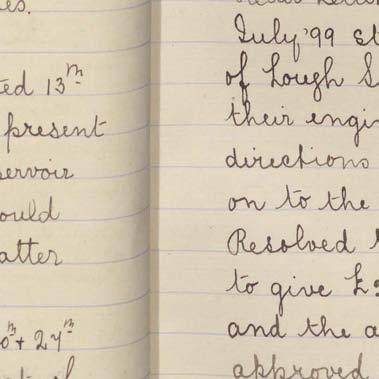 es.
ted 13th
present
servoir
ould
atter
0th + 27th
July '99 st
of Lough S
their engi
directions
on to the
Resolved
to give £
and the a
approved